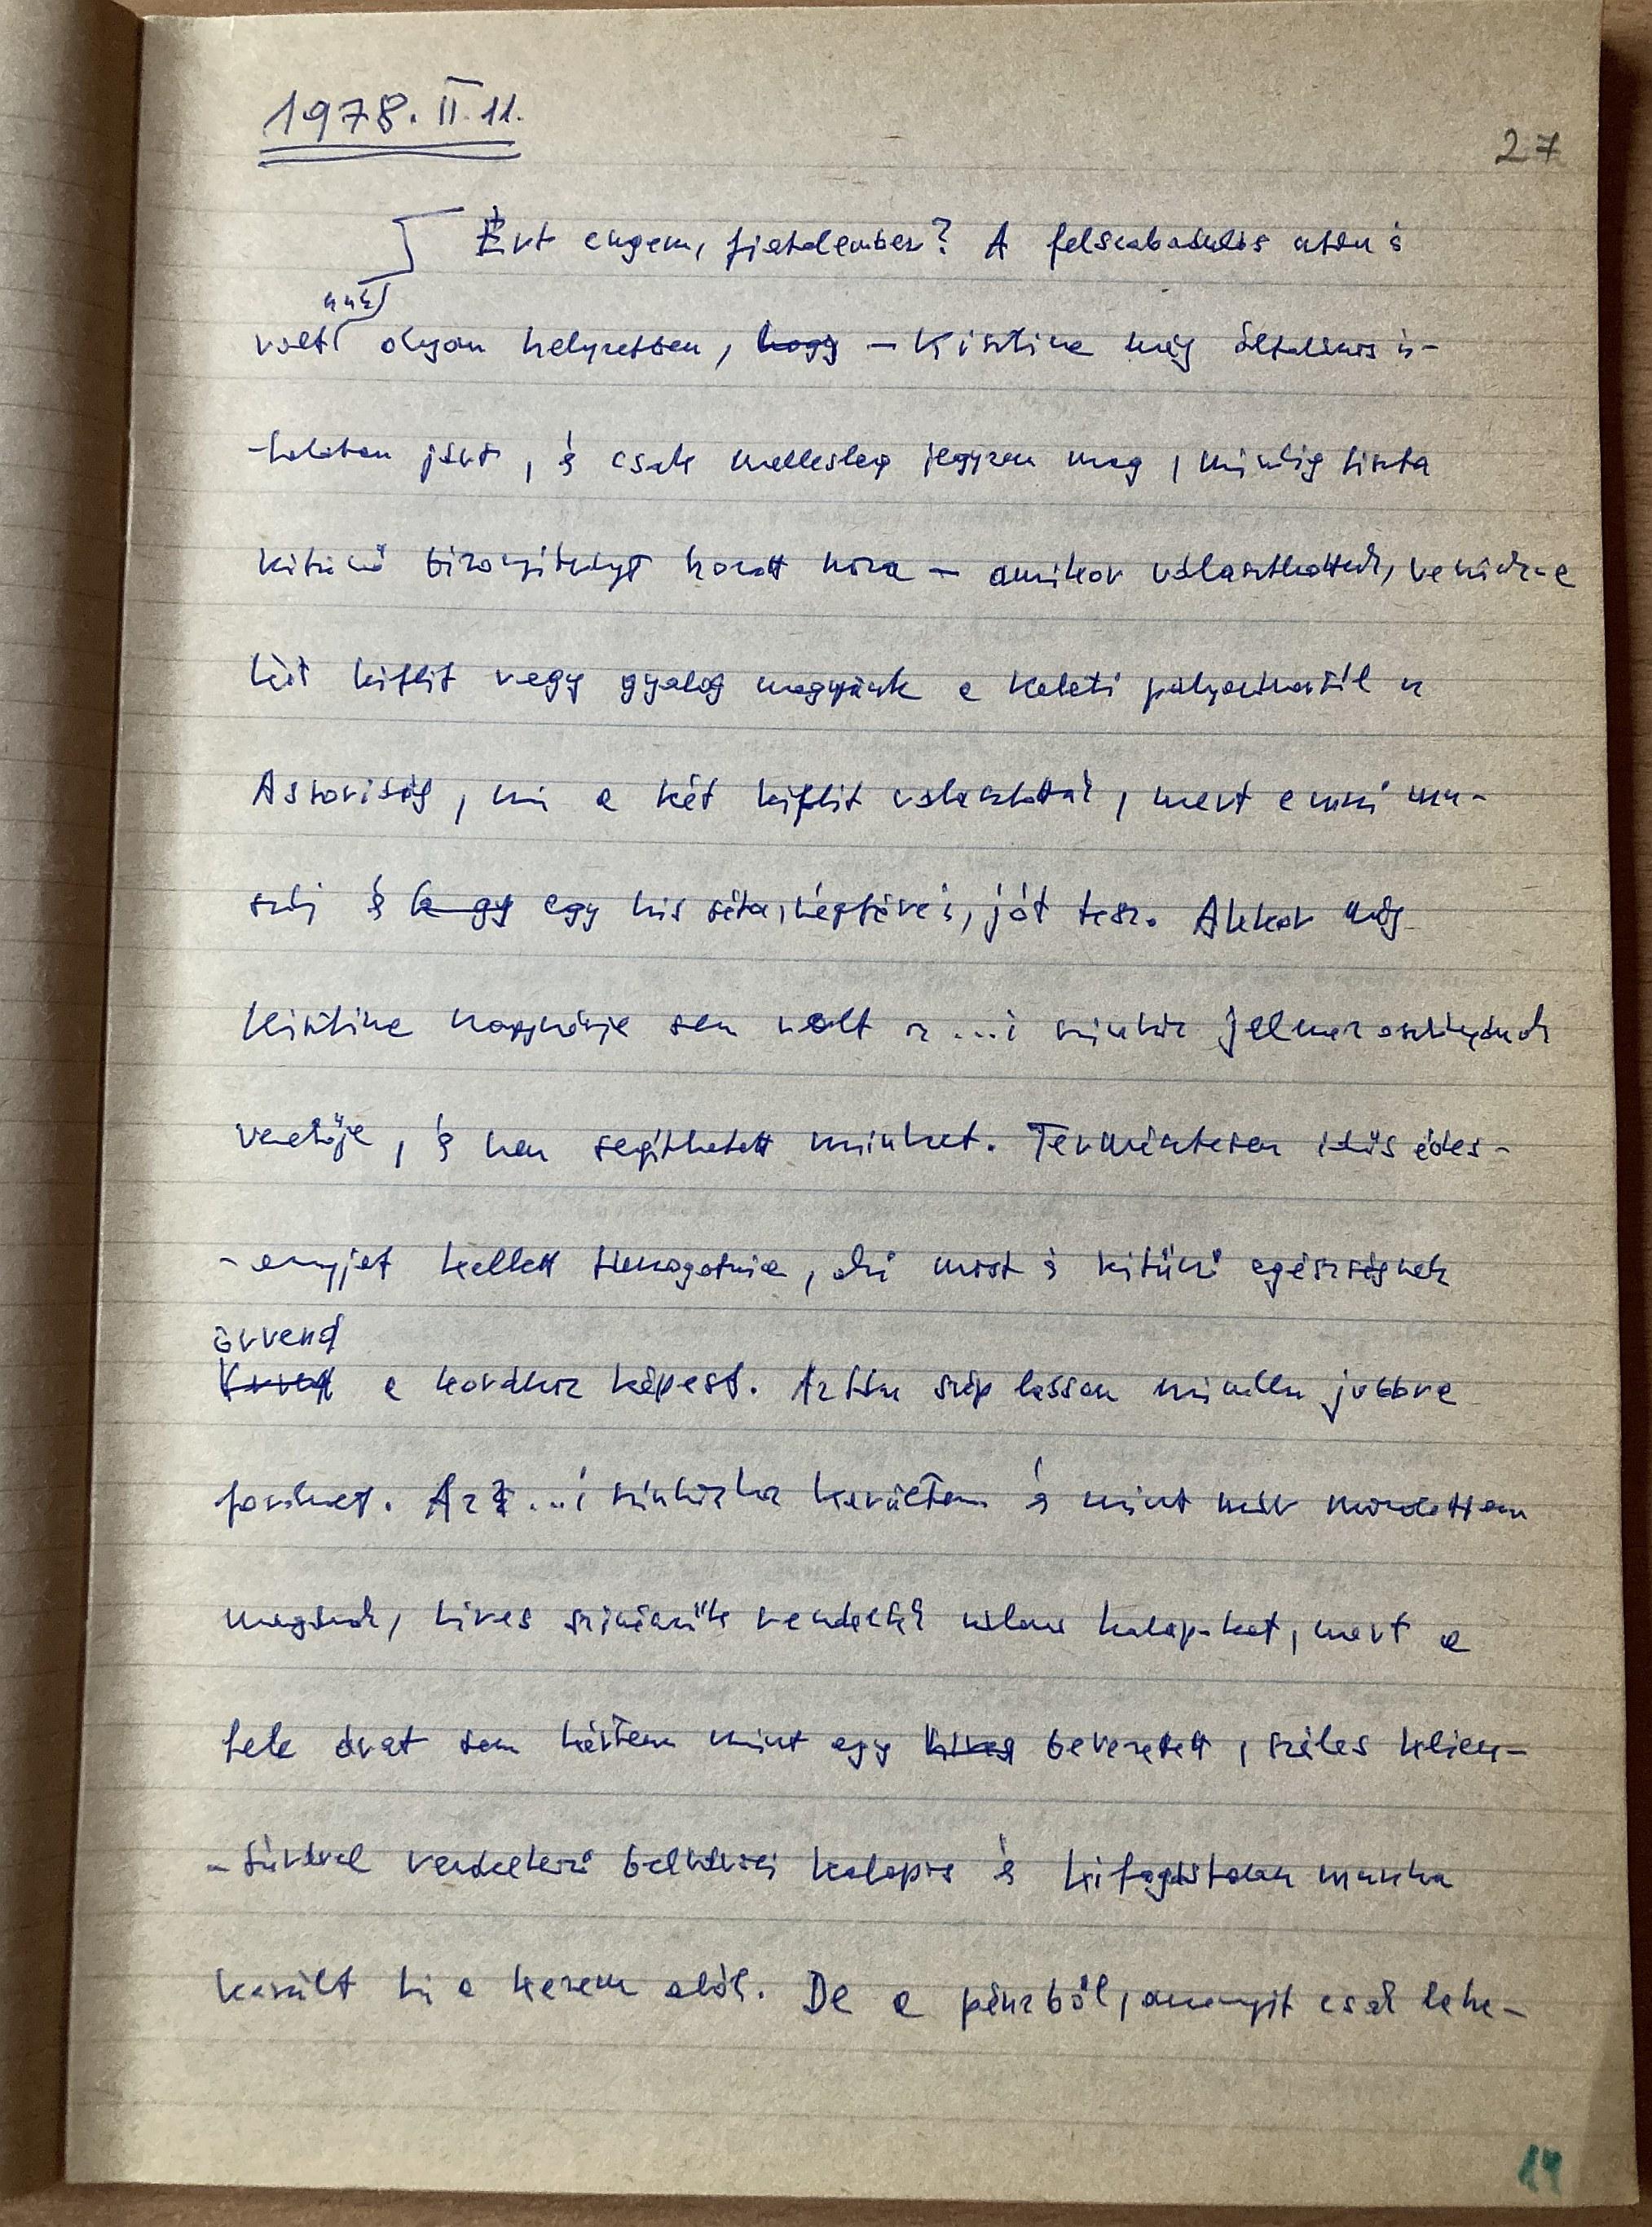 1978. II. 11.
27
Ért engem, fiatalember? A felszabadulás után is
volt olyan helyzetben, hogy – Kisztine még általános is-
-kolába járt, és csak mellesleg jegyzem meg, mindig tiszta
kitünő bizonyítványt hozott haza – amikor választhattak, vegyünk-e
két kiflit vagy gyalog megyünk a Keleti pályaudvartól az
Astoriáig, mi a két kiflit választottuk, mert enni mu-
száj és hogy egy kis séta, légköve is, jót tesz. Akkor még
nagynénje sem volt a ...i színház Jelmezosztályának
vezetője, és nem segíthetett minket. Természetesen idős édes-
-anyját kellett támogatnia, aki most is kitünő egészségnek
örvend
a korához képest. Aztán szép lassan minden jobbra
fordult. Az ...i színházhoz kerültem és mint már mondottam
magának, híres színészek rendeltek nálam kalapokat, mert a
fele árat sem kértem mint egy híres bevezetett, széles klien-
-túrával rendelkező belvárosi kalapos és kifogástalan munka
került ki a kezem alól. De a pénzből, amennyit csak lehe-
14